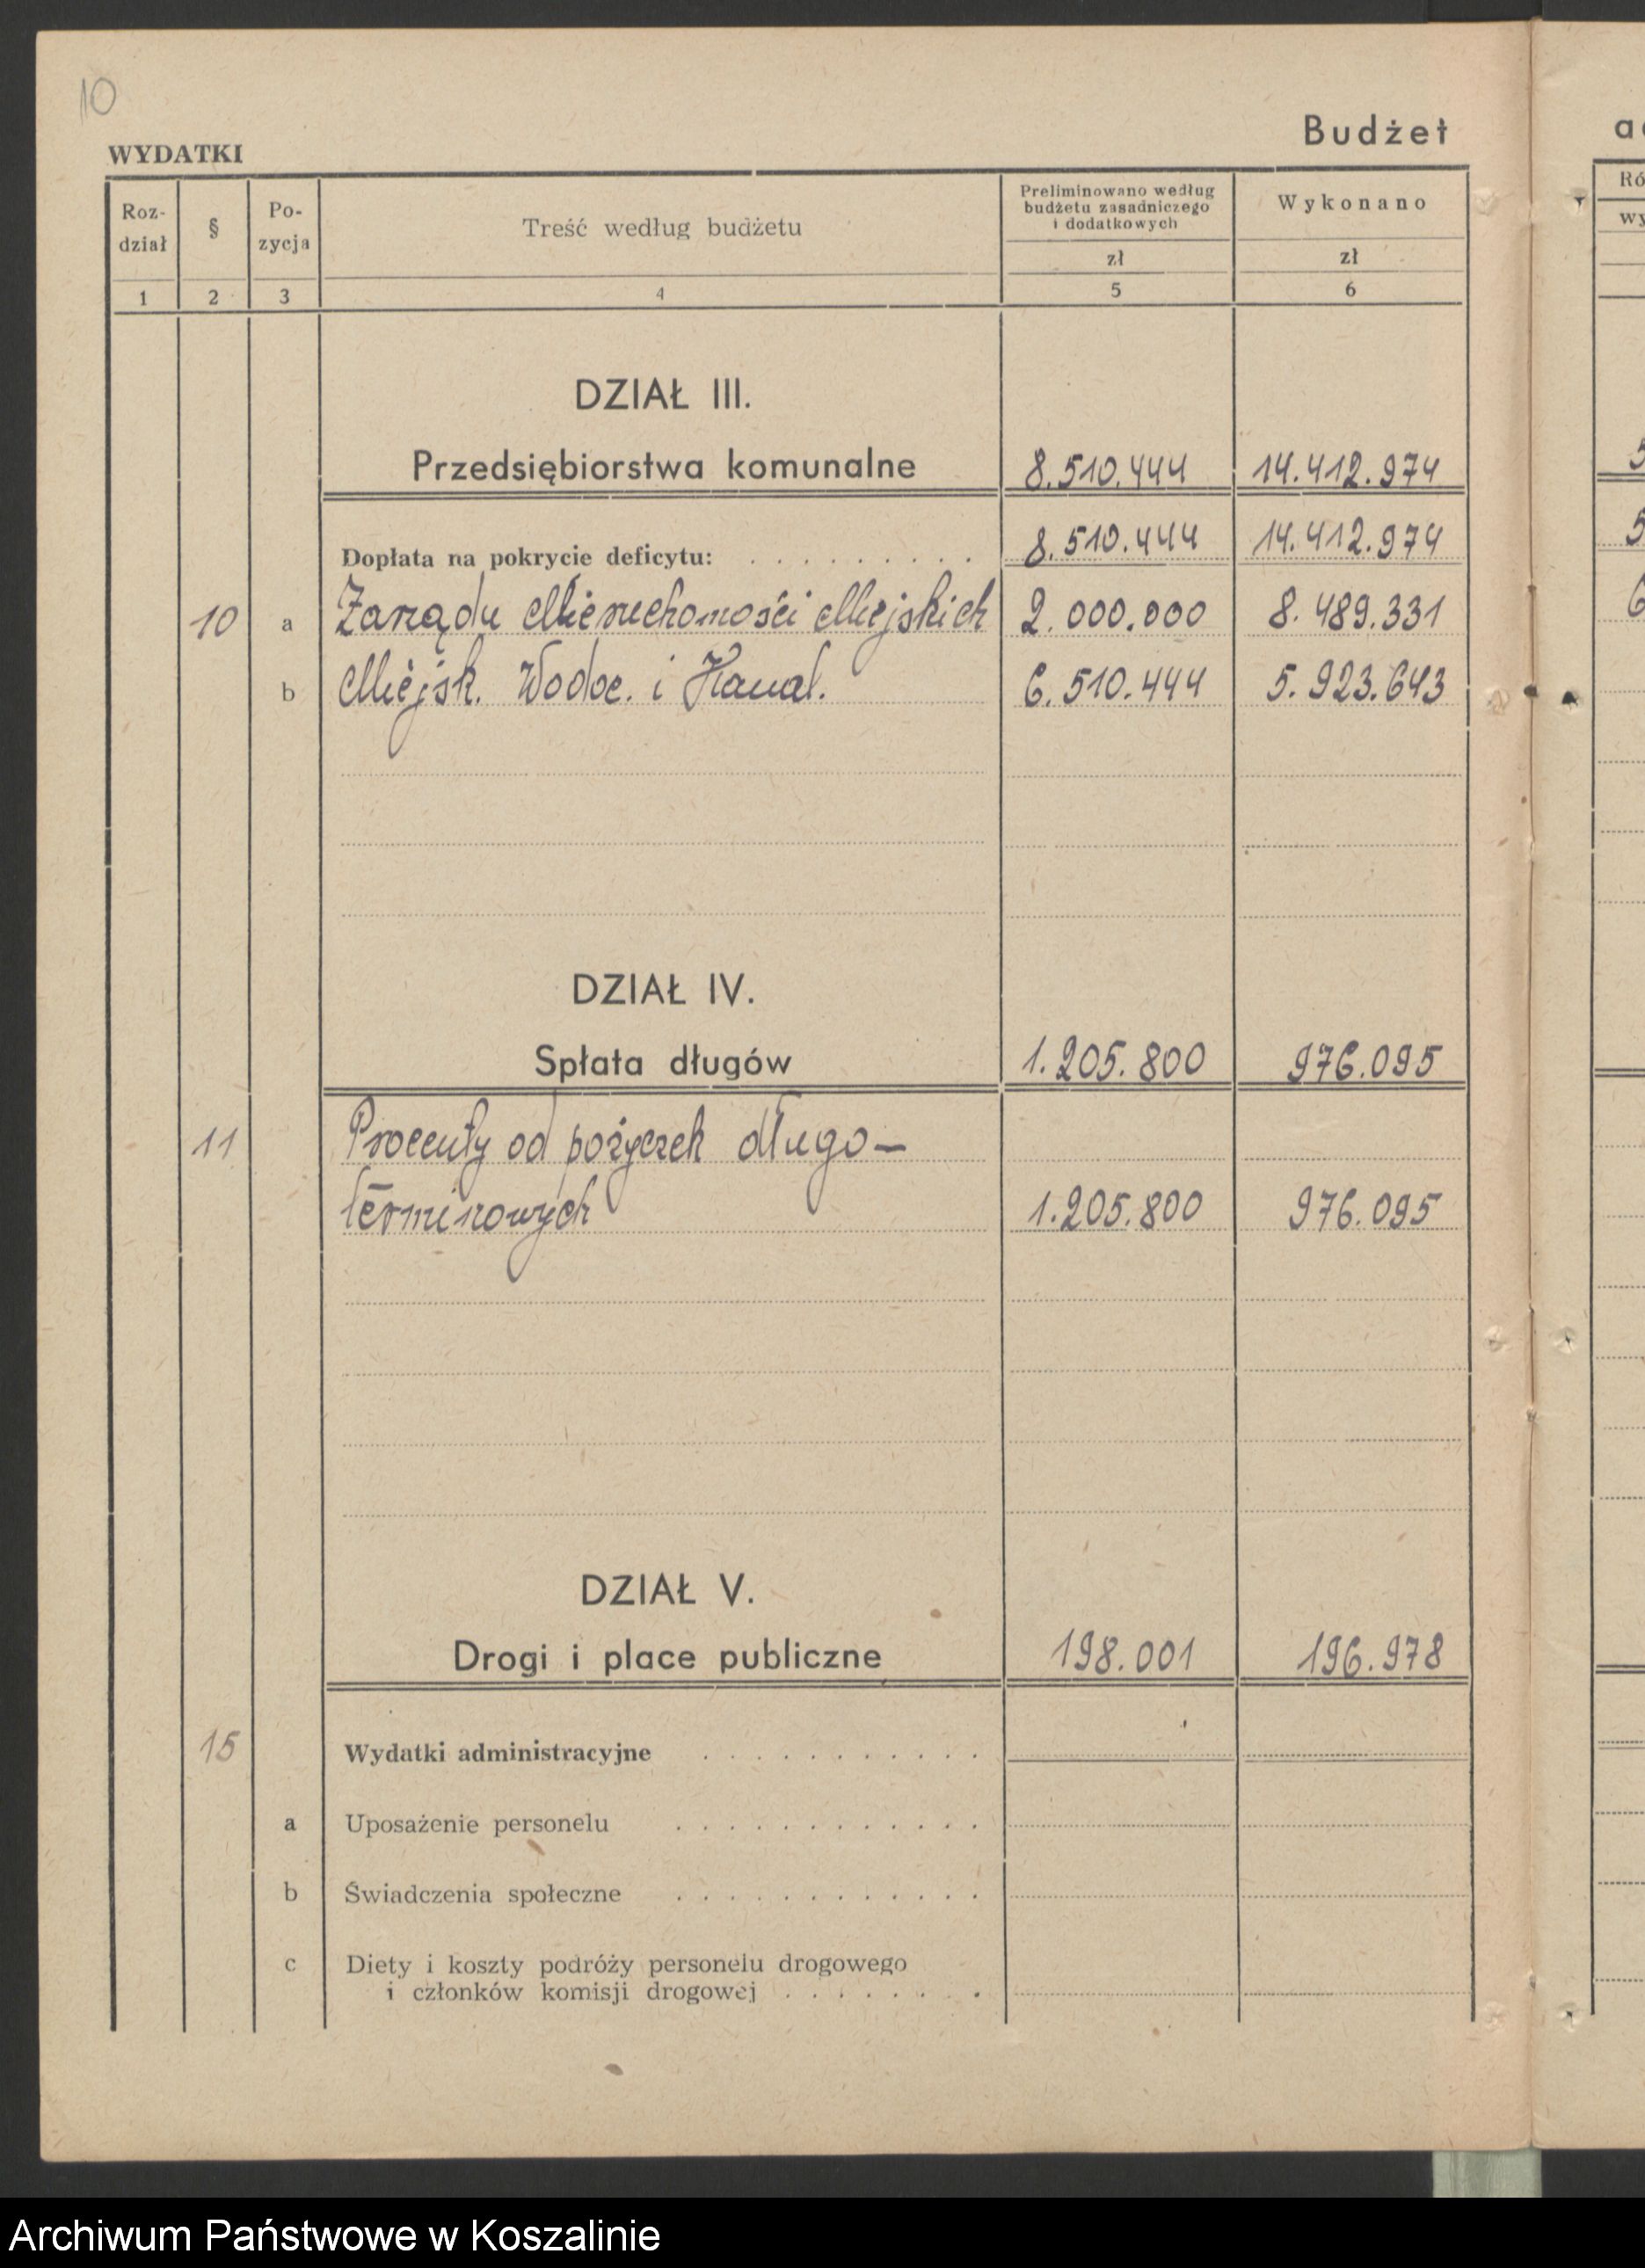 10
WYDATKI
Budżet
Roz-
dział
§
Po-
zycja
Treść według budżetu
Preliminowano według
budżetu zasadniczego
i dodatkowych
Wykonano
zł zł
1 2 3 4 5 6
DZIAŁ III.
Przedsiębiorstwa komunalne 8.510.444 14.412.974
Dopłata na pokrycie deficytu: . . . . . . . . . 8.510.444 14.412.974
10 a Zarządu Nieruchomości Miejskich 2.000.000 8.489.331
b Miejsk. Wodoc. i Kanal. 6.510.444 5.923.643
DZIAŁ IV.
Spłata długów 1.205.800 976.095
11 Procenty od pożyczek długo-
terminowych 1.205.800 976.095
DZIAŁ V.
Drogi i place publiczne 198.001 196.978
15 Wydatki administracyjne . . . . . . . . . . .
a Uposażenie personelu . . . . . . . . . . . .
b Świadczenia społeczne . . . . . . . . . . . .
c Diety i koszty podróży personelu drogowego
i członków komisji drogowej . . . . . . . .
Archiwum Państwowe w Koszalinie